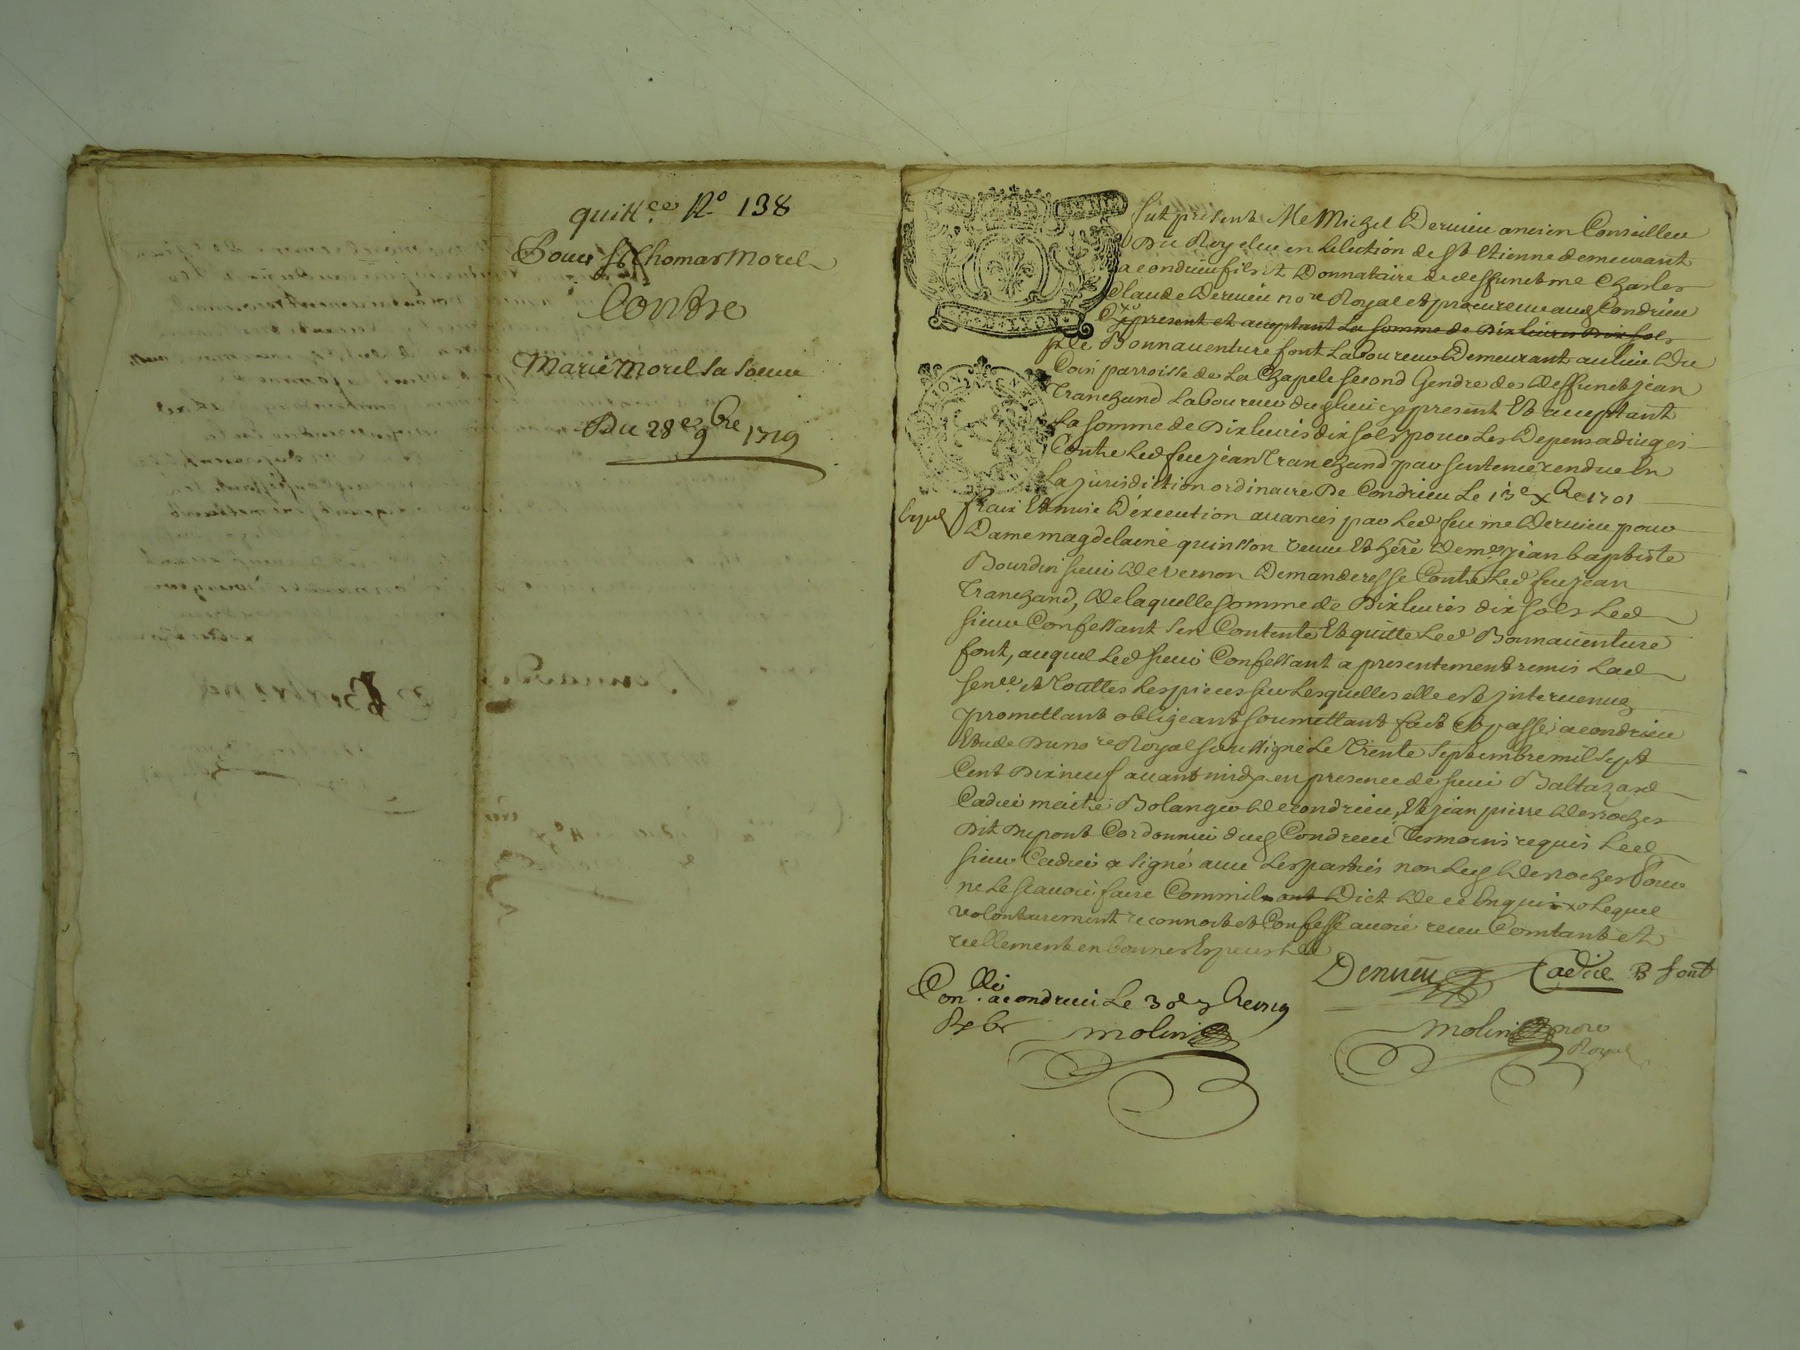 quittce No 138
Pour Sr Thomas Morel
Contre
Marie Morel sa soeur
Du 28e 9bre 1719
LYON
fut présent Me Michel Dervieu ancien Conseiller
Du Roy eleu en Lelection de St Etienne demeurant
a condrieu fils et Donnataire de deffunct me Charles
Claude Dervieu nore Royal et procureur audt Condrieu
present et acceptant La somme de Dix livres Dix sols
Bonnauenture font Laboureur Demeurant au lieu Du
Coin parroisse de La Chapele second Gendre de deffunct jean
Tranchand Laboureur dudt lieu cy present Et acceptant
La somme de Dix liures dix sols pour Les Depens adiuges
Contre Led feu jean Tranchand par sentence rendue En
La jurisdiction ordinaire De Condrieu Le 13e xbre 1701
frais Et mise D'execution auancés par Led feu me Dervieu pour
Dame magdelaine quinsson veuue Et here de me jean baptiste
Bourdin sieur de vernon Demanderesse Contre Led feu jean
Tranchand, de laquelle somme de Dix liures dix sols Led
sieur Confessant s'en Contente Et quitte Led Bonnauenture
font, auquel Led sieur Confessant a presentement remis Lad
sence et Touttes Les pieces sur Lesquelles elle est jnteruenue
promettant obligeant soumettant fait et passé a condrieu
Etude Du nore Royal soussigné Le Trente septembre mil sept
Cent Dix neuf auant midy en presence de sieur Baltazard
Cadier maitre Bolanger de condrieu, Et jean pierre Desroches
Dit Dupont Cordonnier dudt Condrieu Tesmoins requis Led
sieur Cadier a signé auec Les parties non Led Desroches Pour
ne Le scauoir faire Comme il ont Dict de ce Enquis Lequel
volontairement reconnoit et Confesse auoir receu Comtant et
reellement en bonnes Especes de
Dervieu Cadier B font
Conllé a condrieu Le 30e 7bre 1719
molin
molin nore
Royal